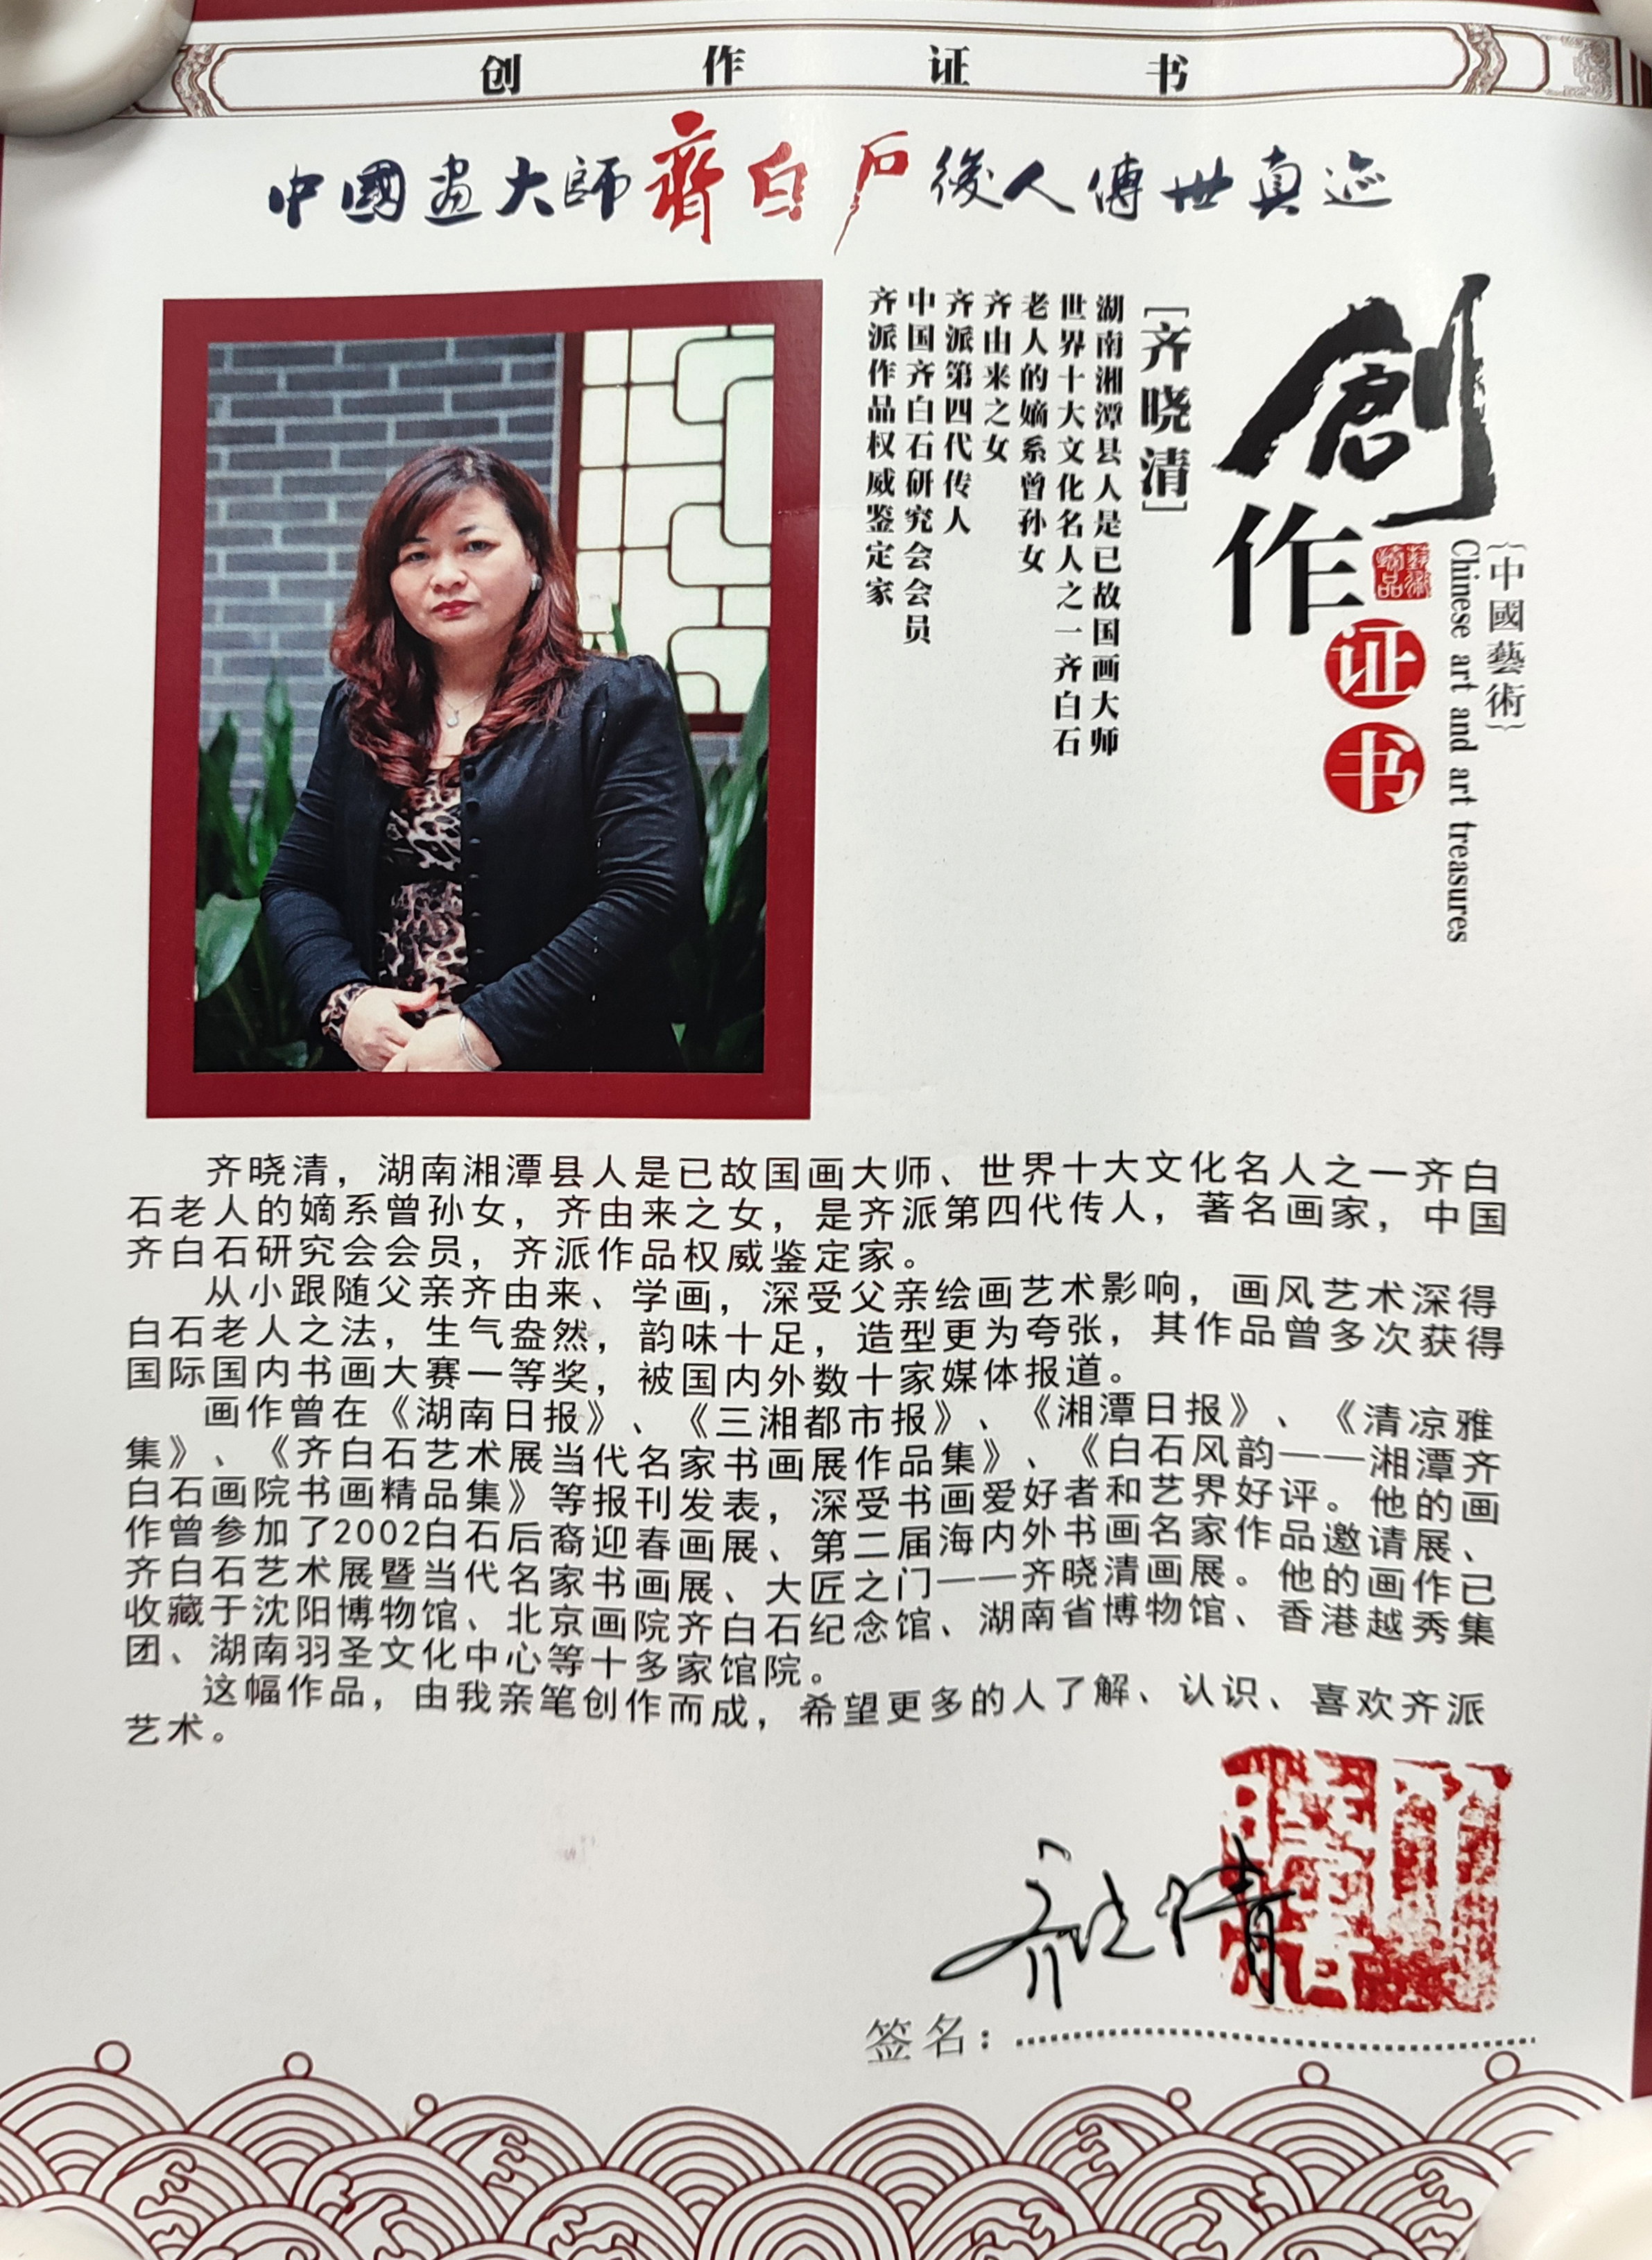 创作证书
中國画大師齊白石後人傳世真迹
創作证书
藝術精品
{中國藝術}
Chinese art and art treasures
[齐晓清]
湖南湘潭县人是已故国画大师
世界十大文化名人之一齐白石
老人的嫡系曾孙女
齐由来之女
齐派第四代传人
中国齐白石研究会会员
齐派作品权威鉴定家
齐晓清，湖南湘潭县人是已故国画大师、世界十大文化名人之一齐白
石老人的嫡系曾孙女，齐由来之女，是齐派第四代传人，著名画家，中国
齐白石研究会会员，齐派作品权威鉴定家。
从小跟随父亲齐由来、学画，深受父亲绘画艺术影响，画风艺术深得
白石老人之法，生气盎然，韵味十足，造型更为夸张，其作品曾多次获得
国际国内书画大赛一等奖，被国内外数十家媒体报道。
画作曾在《湖南日报》、《三湘都市报》、《湘潭日报》、《清凉雅
集》、《齐白石艺术展当代名家书画展作品集》、《白石风韵——湘潭齐
白石画院书画精品集》等报刊发表，深受书画爱好者和艺界好评。他的画
作曾参加了2002白石后裔迎春画展、第二届海内外书画名家作品邀请展、
齐白石艺术展暨当代名家书画展、大匠之门——齐晓清画展。他的画作已
收藏于沈阳博物馆、北京画院齐白石纪念馆、湖南省博物馆、香港越秀集
团、湖南羽圣文化中心等十多家馆院。
这幅作品，由我亲笔创作而成，希望更多的人了解、认识、喜欢齐派
艺术。
齐晓清
签名：